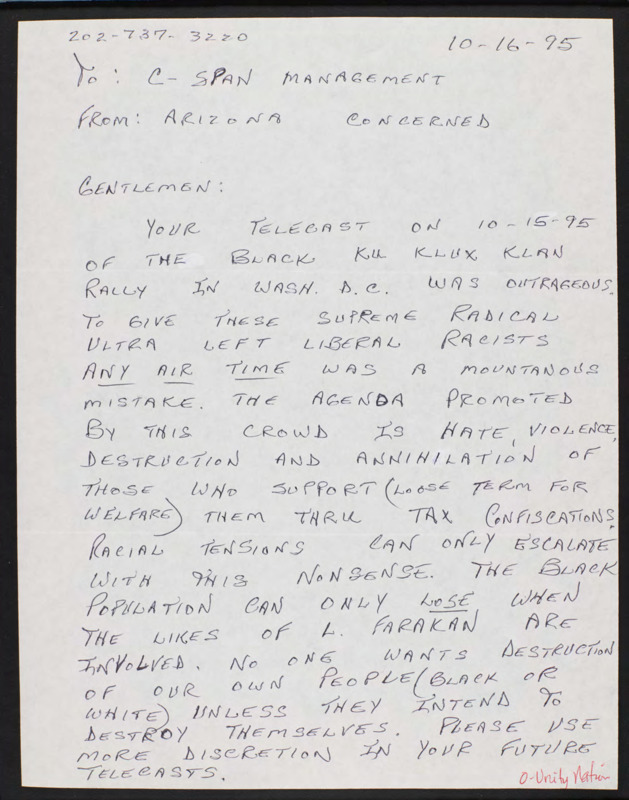 202-737-3220
10-16-95
To: C-SPAN MANAGEMENT
FROM: ARIZONA CONCERNED
GENTLEMEN:
YOUR TELECAST ON 10-15-95
OF THE BLACK KU KLUX KLAN
RALLY IN WASH. D.C. WAS OUTRAGEOUS.
TO GIVE THESE SUPREME RADICAL
ULTRA LEFT LIBERAL RACISTS
ANY AIR TIME WAS A MOUNTANOUS
MISTAKE. THE AGENDA PROMOTED
BY THIS CROWD IS HATE, VIOLENCE,
DESTRUCTION AND ANNIHILATION OF
THOSE WHO SUPPORT (LOOSE TERM FOR
WELFARE) THEM THRU TAX CONFISCATIONS.
RACIAL TENSIONS CAN ONLY ESCALATE
WITH THIS NONSENSE. THE BLACK
POPULATION CAN ONLY LOSE WHEN
THE LIKES OF L. FARAKAN ARE
INVOLVED. NO ONE WANTS DESTRUCTION
OF OUR OWN PEOPLE (BLACK OR
WHITE) UNLESS THEY INTEND TO
DESTROY THEMSELVES. PLEASE USE
MORE DISCRETION IN YOUR FUTURE
TELECASTS.
O-Unity Nation